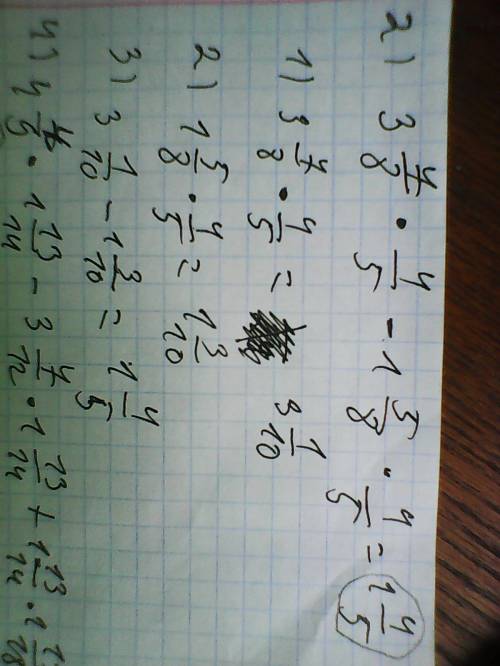 2) 3 7/8 · 4/5 - 1 5/8 · 4/5 = 1 4/5
1) 3 7/8 · 4/5 = 3 1/10
2) 1 5/8 · 4/5 = 1 3/10
3) 3 1/10 - 1 3/10 = 1 4/5
4) 4 · 1 13/14 - 3 7/12 · 1 13/14 + 1 13/14 ·